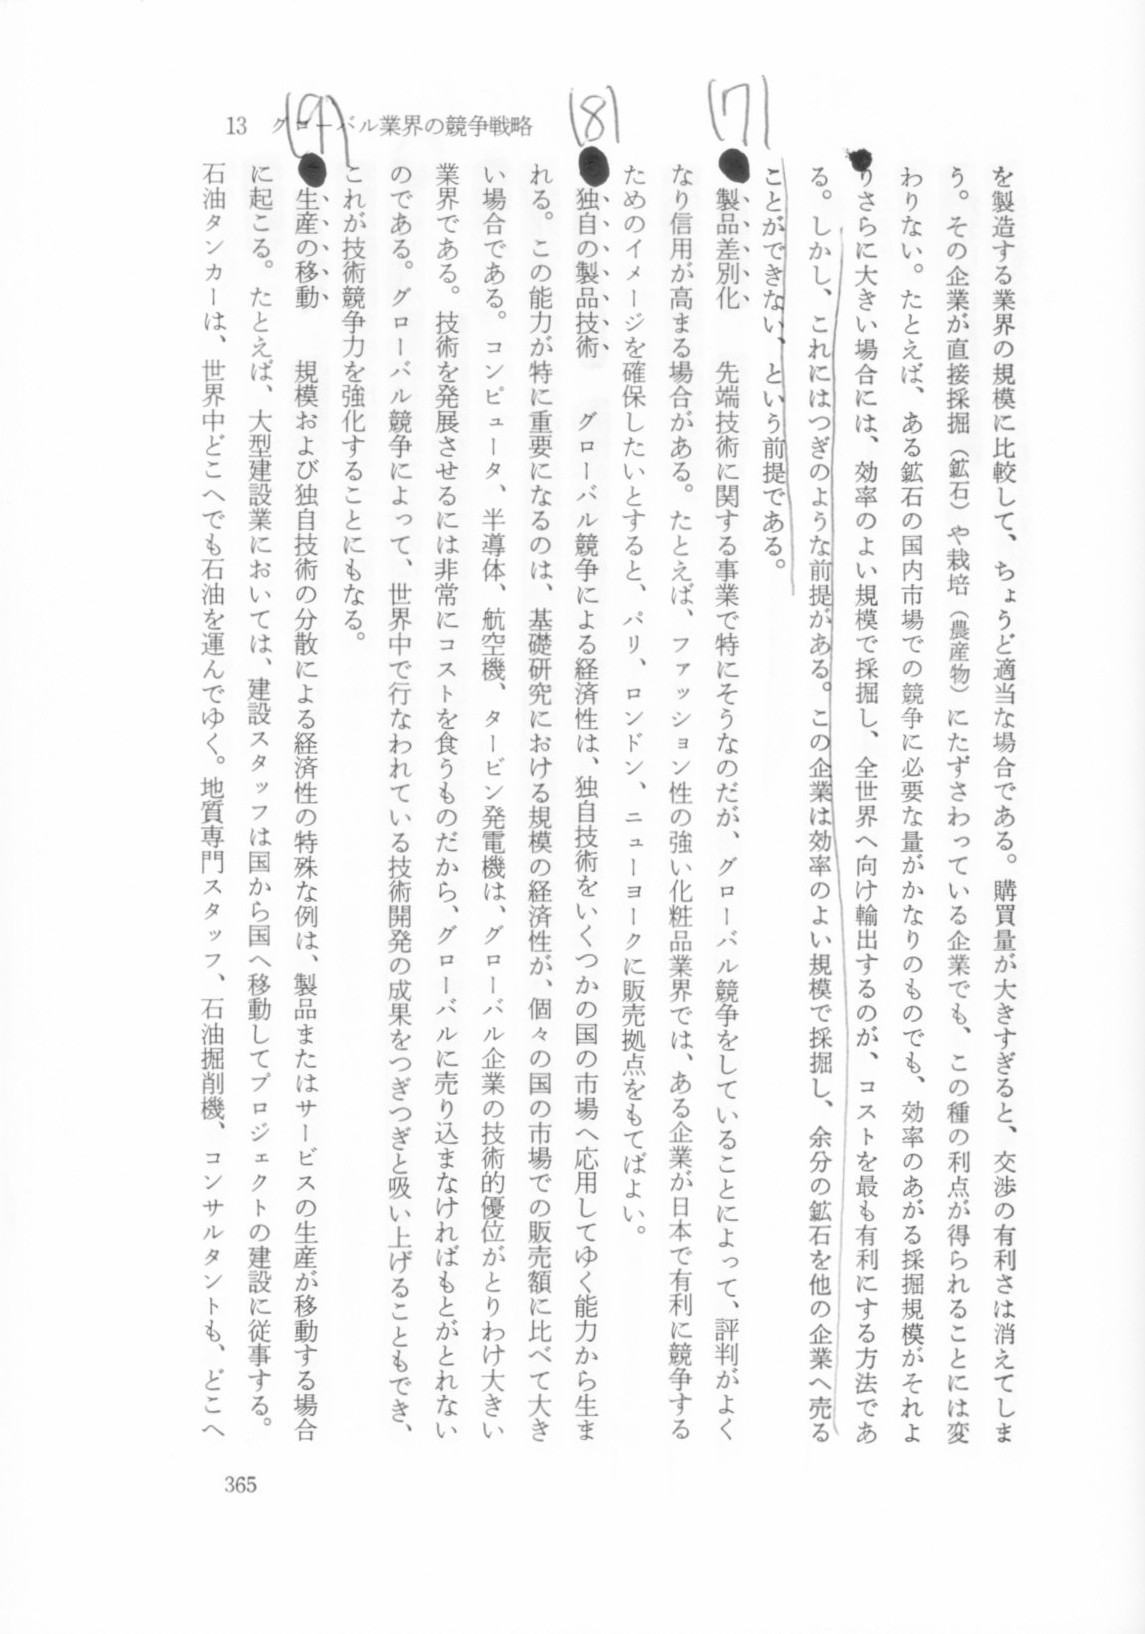 13 グローバル業界の競争戦略
(7)
(8)
(9)
を製造する業界の規模に比較して、ちょうど適当な場合である。購買量が大きすぎると、交渉の有利さは消えてしま
う。その企業が直接採掘（鉱石）や栽培（農産物）にたずさわっている企業でも、この種の利点が得られることには変
わりない。たとえば、ある鉱石の国内市場での競争に必要な量がかなりのものでも、効率のあがる採掘規模がそれよ
りさらに大きい場合には、効率のよい規模で採掘し、全世界へ向け輸出するのが、コストを最も有利にする方法であ
る。しかし、これにはつぎのような前提がある。この企業は効率のよい規模で採掘し、余分の鉱石を他の企業へ売る
ことができない、という前提である。
製品差別化　先端技術に関する事業で特にそうなのだが、グローバル競争をしていることによって、評判がよく
なり信用が高まる場合がある。たとえば、ファッション性の強い化粧品業界では、ある企業が日本で有利に競争する
ためのイメージを確保したいとすると、パリ、ロンドン、ニューヨークに販売拠点をもてばよい。
独自の製品技術　グローバル競争による経済性は、独自技術をいくつかの国の市場へ応用してゆく能力から生ま
れる。この能力が特に重要になるのは、基礎研究における規模の経済性が、個々の国の市場での販売額に比べて大き
い場合である。コンピュータ、半導体、航空機、タービン発電機は、グローバル企業の技術的優位がとりわけ大きい
業界である。技術を発展させるには非常にコストを食うものだから、グローバルに売り込まなければもとがとれない
のである。グローバル競争によって、世界中で行なわれている技術開発の成果をつぎつぎと吸い上げることもでき、
これが技術競争力を強化することにもなる。
生産の移動　規模および独自技術の分散による経済性の特殊な例は、製品またはサービスの生産が移動する場合
に起こる。たとえば、大型建設業においては、建設スタッフは国から国へ移動してプロジェクトの建設に従事する。
石油タンカーは、世界中どこへでも石油を運んでゆく。地質専門スタッフ、石油掘削機、コンサルタントも、どこへ
365